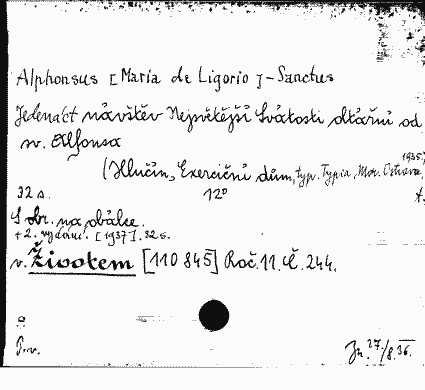 Alphonsus [Maria de Ligorio] - Sanctus
Jedenáct návštěv Nejsvětější Svátosti oltářní od
sv. Alfonsa
1935
(Hlučín, Exerciční dům, typ. Typia, Mor. Ostrava
32 s. 12°
S obr. na obálce.
+ 2. vydání. [1937]. 32 s.
v. Životem [110 845] Roč. 11. č. 244.
27./8. 36.